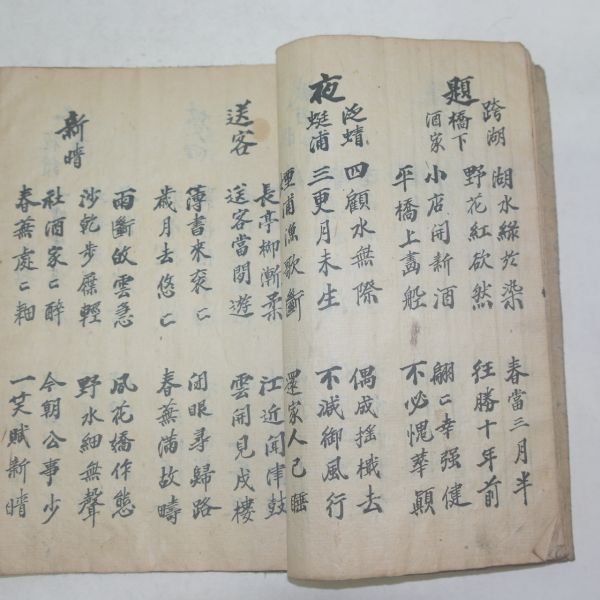 題跨湖橋下酒家
湖水綠於染
春當三月半
野花紅欲然
狂勝十年前
小店開新酒
翩〻幸强健
平橋上畵船
不必愧華顚
夜泛蜻蜓浦
四顧水無際
偶成搖檝去
三更月未生
不減御風行
浦漁歌斷
還家人已睡
送客
長亭柳漸柔
江近聞津鼓
送客當閒遊
雲開見戍樓
傳書來袞〻
閉眼尋歸路
歲月去悠〻
春蕪滿故疇
新晴
雨斷收雲急
風花嬌作態
沙乾步屧輕
野水細無聲
社酒家〻醉
今朝公事少
春蕪處〻耕
一笑賦新晴